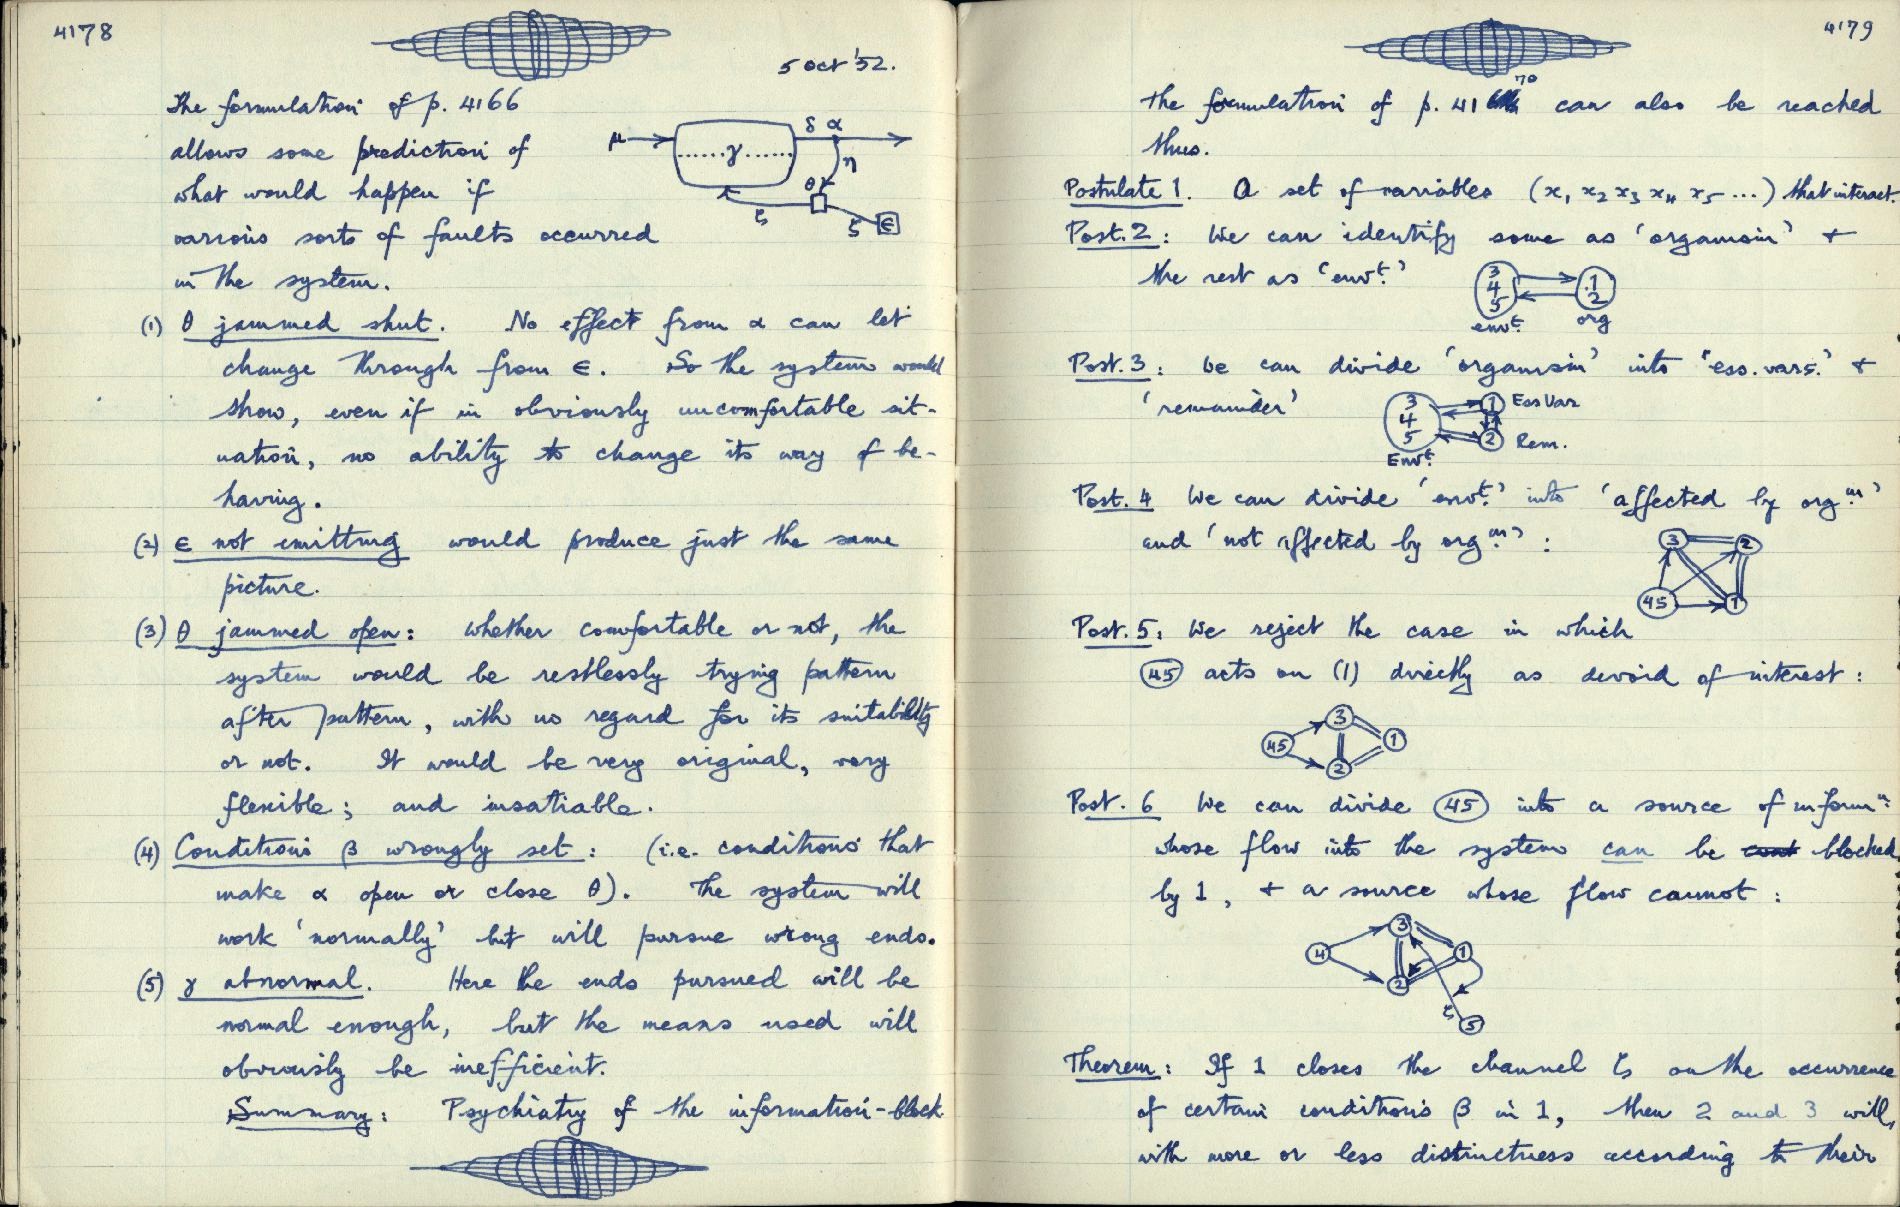 4178
5 Oct '52.
The formulation of p. 4166
allows some prediction of
what would happen if
various sorts of faults occurred
in the system.
μ δ α
......γ......
η
θ
ζ ξ ε
(1) θ jammed shut. No effect from α can let
change through from ε. So the system would
show, even if in obviously uncomfortable sit-
uation, no ability to change its way of be-
having.
(2) ε not emitting would produce just the same
picture.
(3) θ jammed open: whether comfortable or not, the
system would be restlessly trying pattern
after pattern, with no regard for its suitability
or not. It would be very original, very
flexible; and insatiable.
(4) Conditions β wrongly set: (i.e. conditions that
make α open or close θ). The system will
work 'normally' but will pursue wrong ends.
(5) γ abnormal. Here the ends pursued will be
normal enough, but the means used will
obviously be inefficient.
Summary: Psychiatry of the information-block
4179
The formulation of p. 4170 can also be reached
thus.
Postulate 1. A set of variables (x1 x2 x3 x4 x5 ...) that interact.
Post. 2: We can identify some as 'organism' +
the rest as 'envt.'
3 4 5 1 2
envt. org
Post. 3: We can divide 'organism' into 'ess. vars.' +
'remainder'
3 4 5 1 Ess Var
2 Rem.
Envt.
Post. 4 We can divide 'envt.' into 'affected by orgm.'
and 'not affected by orgm.' :
3 2
45 1
Post. 5: We reject the case in which
45 acts on (1) directly as devoid of interest :
3
45 1
2
Post. 6 We can divide 45 into a source of informn.
whose flow into the system can be blocked
by 1, + a source whose flow cannot :
3
4 1
2
ζ
5
Theorem: If 1 closes the channel ζ on the occurrence
of certain conditions β in 1, then 2 and 3 will,
with more or less distinctness according to their